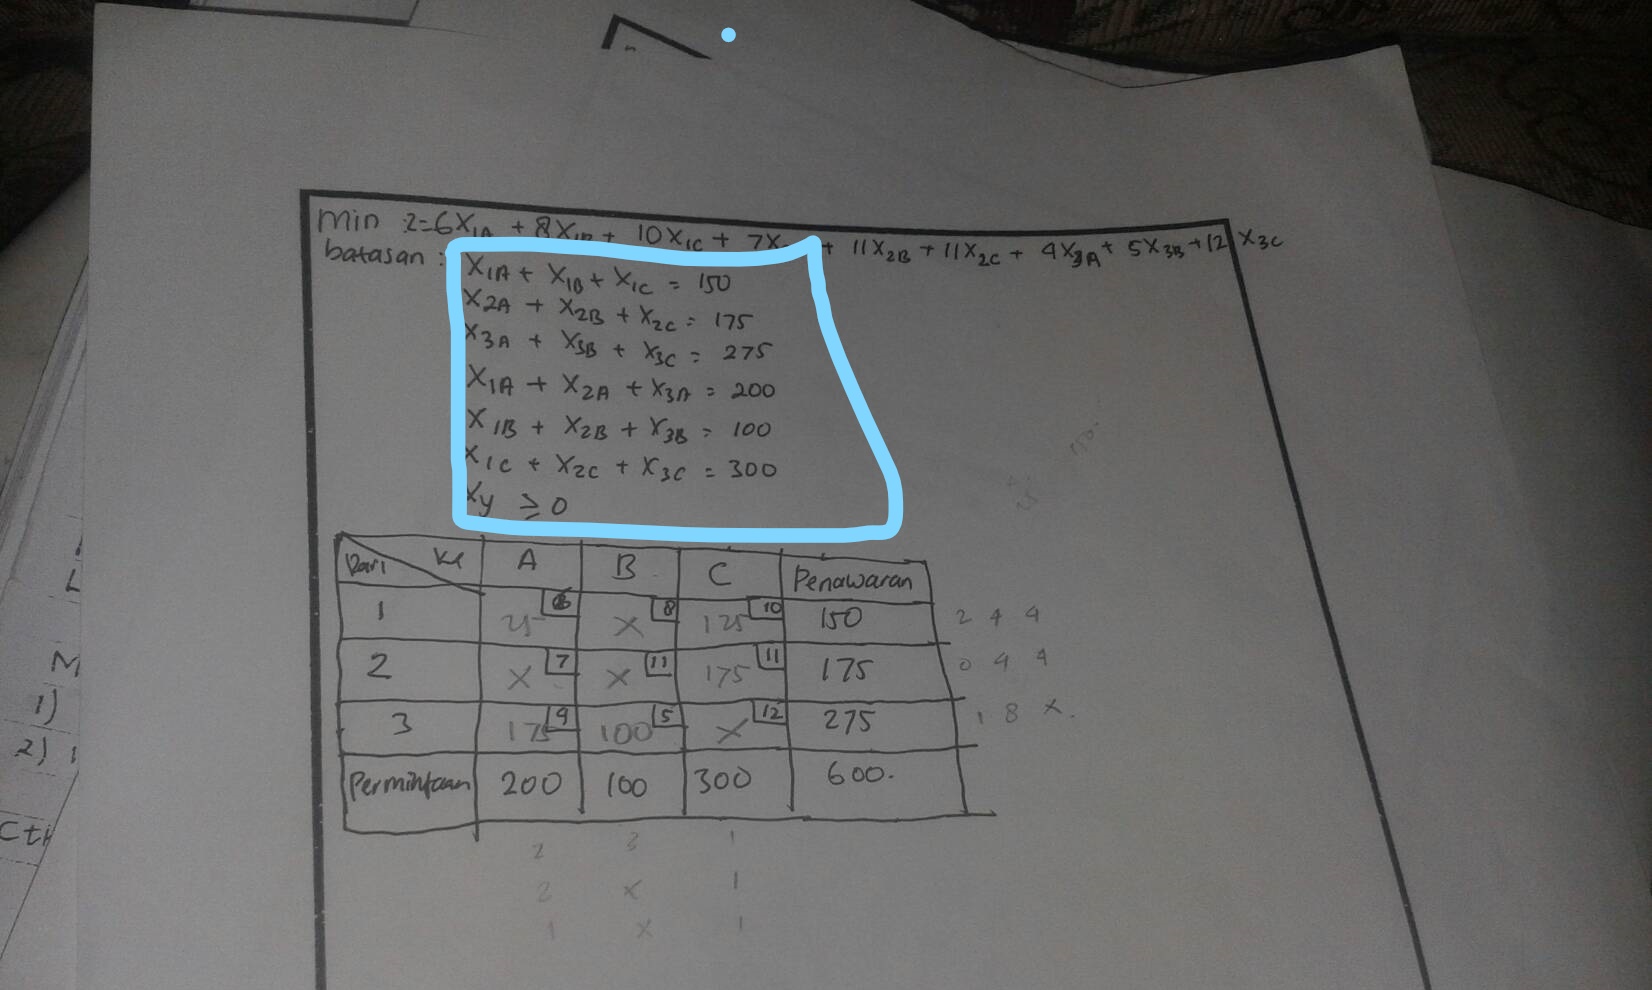 Min Z=6X1A + 8X1B + 10X1C + 7X + 11X2B + 11X2C + 4X3A + 5X3B + 12 X3C
batasan :
X1A + X1B + X1C = 150
X2A + X2B + X2C = 175
X3A + X3B + X3C = 275
X1A + X2A + X3A = 200
X1B + X2B + X3B = 100
X1C + X2C + X3C = 300
Xy ≥ 0
Dari Ke A B C Penawaran
1 25 6 X 8 125 10 150 2 4 4
2 X 7 X 11 175 11 175 0 4 4
3 175 9 100 5 X 12 275 1 8 X
Permintaan 200 100 300 600.
2 3 1
2 X 1
1 X 1
1)
2)